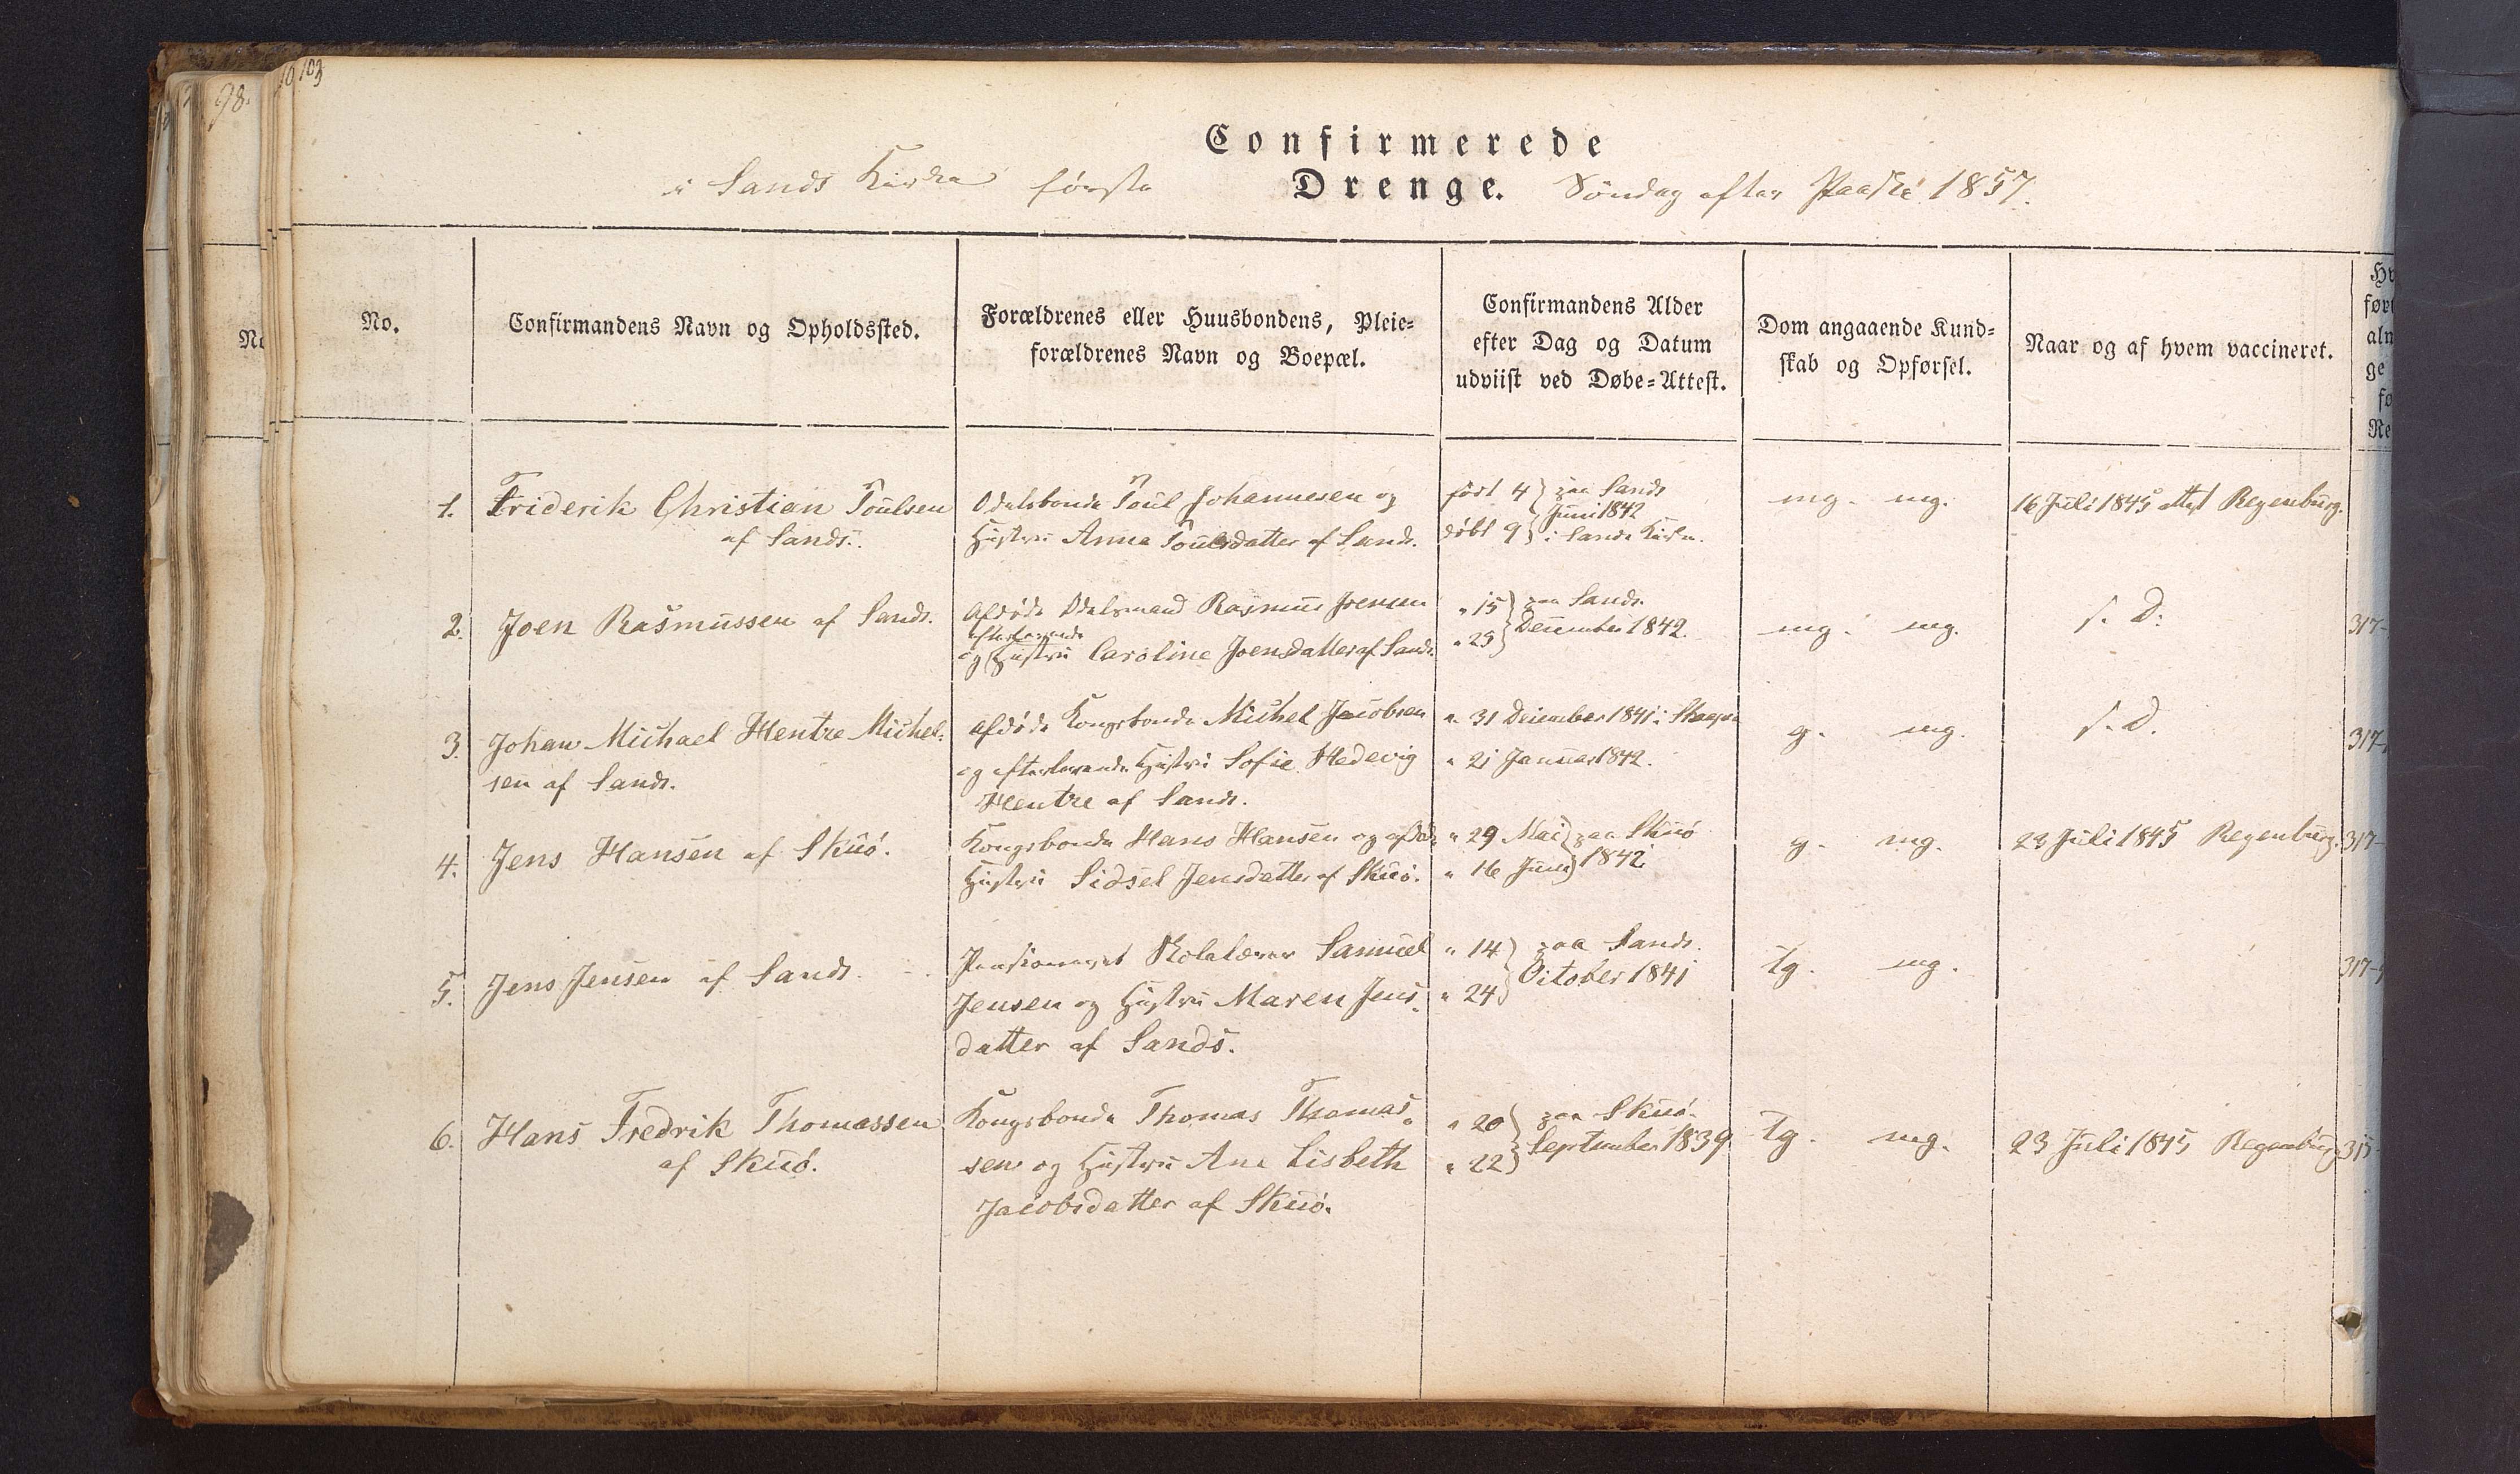 98.
103
Confirmerede
i Sands Kirke første Drenge. Søndag efter Paaske 1857.
No.
No.
Confirmandens Navn og Opholdssted.
Forældrenes eller Huusbondens, Pleie-
forældrenes Navn og Boepæl.
Confirmandens Alder
efter Dag og Datum
udviist ved Døbe-Attest.
Dom angaaende Kund-
skab og Opførsel.
Naar og af hvem vaccineret.
1. Friderik Christian Poulsen
af Sands.
Odelsbonde Poul Johannesen og
Hustru Anna Poulsdatter af Sands.
født 4 paa Sands
Juni 1842
døbt 9 i Sands Kirke.
mg. mg.
16 Juli 1845 attest Regenburg.
2. Joen Rasmussen af Sands.
Afdøde Odelsmand Rasmus Joensen
efterlevende
og Hustru Caroline Joensdatter af Sands
" 15 paa Sands.
December 1842.
" 25
mg. mg.
s. D.
317-
3. Johan Michael Hentze Michel-
sen af Sands.
Afdøde Kongsbonde Michel Jacobsen
og efterlevende Hustru Sofie Hedevig
Hentze af Sands.
" 31 December 1841 i
" 21 Januar 1842.
g. mg.
s. d.
317-
4. Jens Hansen af Skuø.
Kongsbonde Hans Hansen og afdøde
Hustru Sidsel Jensdatter af Skuø.
" 29 Mai paa Skuø
" 16 Juni 1842.
g. mg.
23 Juli 1845 Regenburg.
317-
5. Jens Jensen af Sands.
Pensioneret Skolelærer Samuel
Jensen og Hustru Maren Jens-
datter af Sands.
" 14 paa Sands.
October 1841
" 24
tg. mg.
317-
6. Hans Fredrik Thomassen
af Skuø.
Kongsbonde Thomas Thomas-
sen og Hustru Ane Lisbeth
Jacobsdatter af Skuø.
" 20 paa Skuø.
September 1839
" 22
tg. mg.
23 Juli 1845 Regenburg